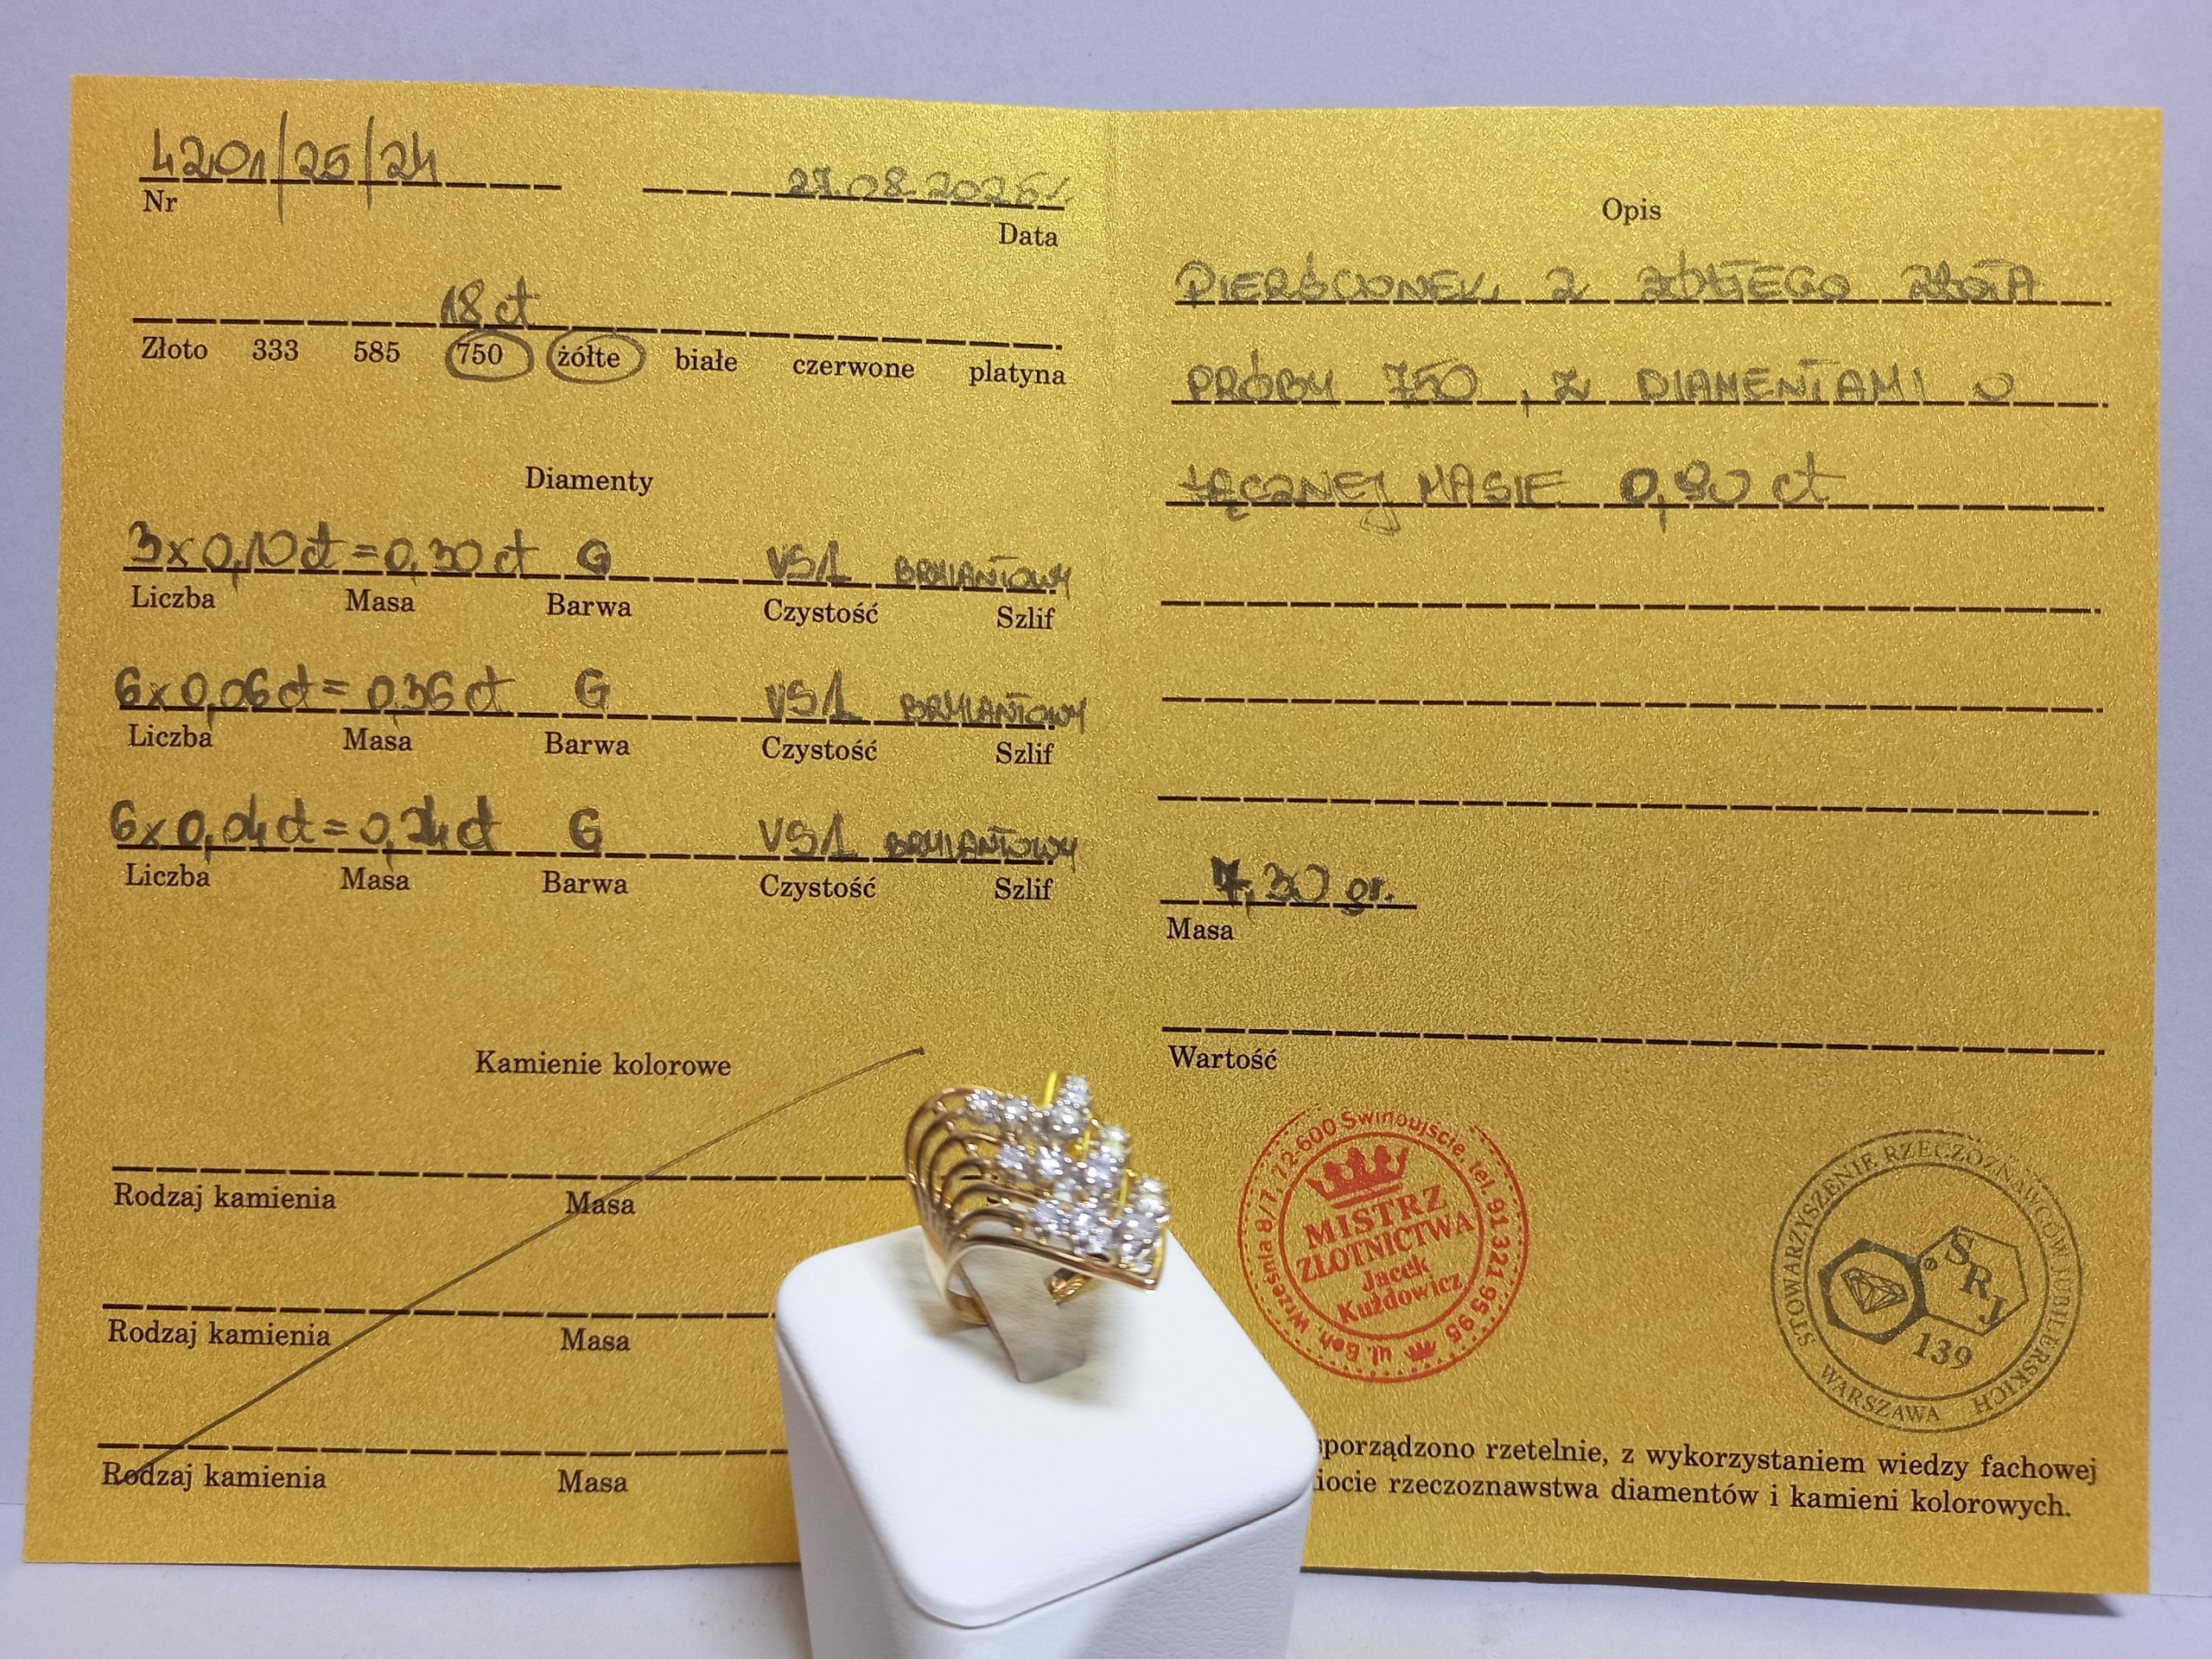 4201/25/24
Nr
27.08.2025r.
Data
18 ct
Złoto 333 585 750 żółte białe czerwone platyna
Diamenty
3x0,10ct=0,30ct G VS1 BRYLANTOWY
Liczba Masa Barwa Czystość Szlif
6x0,06ct=0,36ct G VS1 BRYLANTOWY
Liczba Masa Barwa Czystość Szlif
6x0,04ct=0,24ct G VS1 BRYLANTOWY
Liczba Masa Barwa Czystość Szlif
Kamienie kolorowe
Rodzaj kamienia Masa
Rodzaj kamienia Masa
Rodzaj kamienia Masa
Opis
PIERŚCIONEK Z ŻÓŁTEGO ZŁOTA
PRÓBY 750, Z DIAMENTAMI O
ŁĄCZNEJ MASIE 0,90 ct
7,30 gr.
Masa
Wartość
ul. Boh. Września 8/1, 72-600 Świnoujście, tel. 91 321 95 95
MISTRZ
ZŁOTNICTWA
Jacek
Kużdowicz
STOWARZYSZENIE RZECZOZNAWCÓW JUBILERSKICH
SRJ
139
WARSZAWA
sporządzono rzetelnie, z wykorzystaniem wiedzy fachowej
rzeczoznawstwa diamentów i kamieni kolorowych.